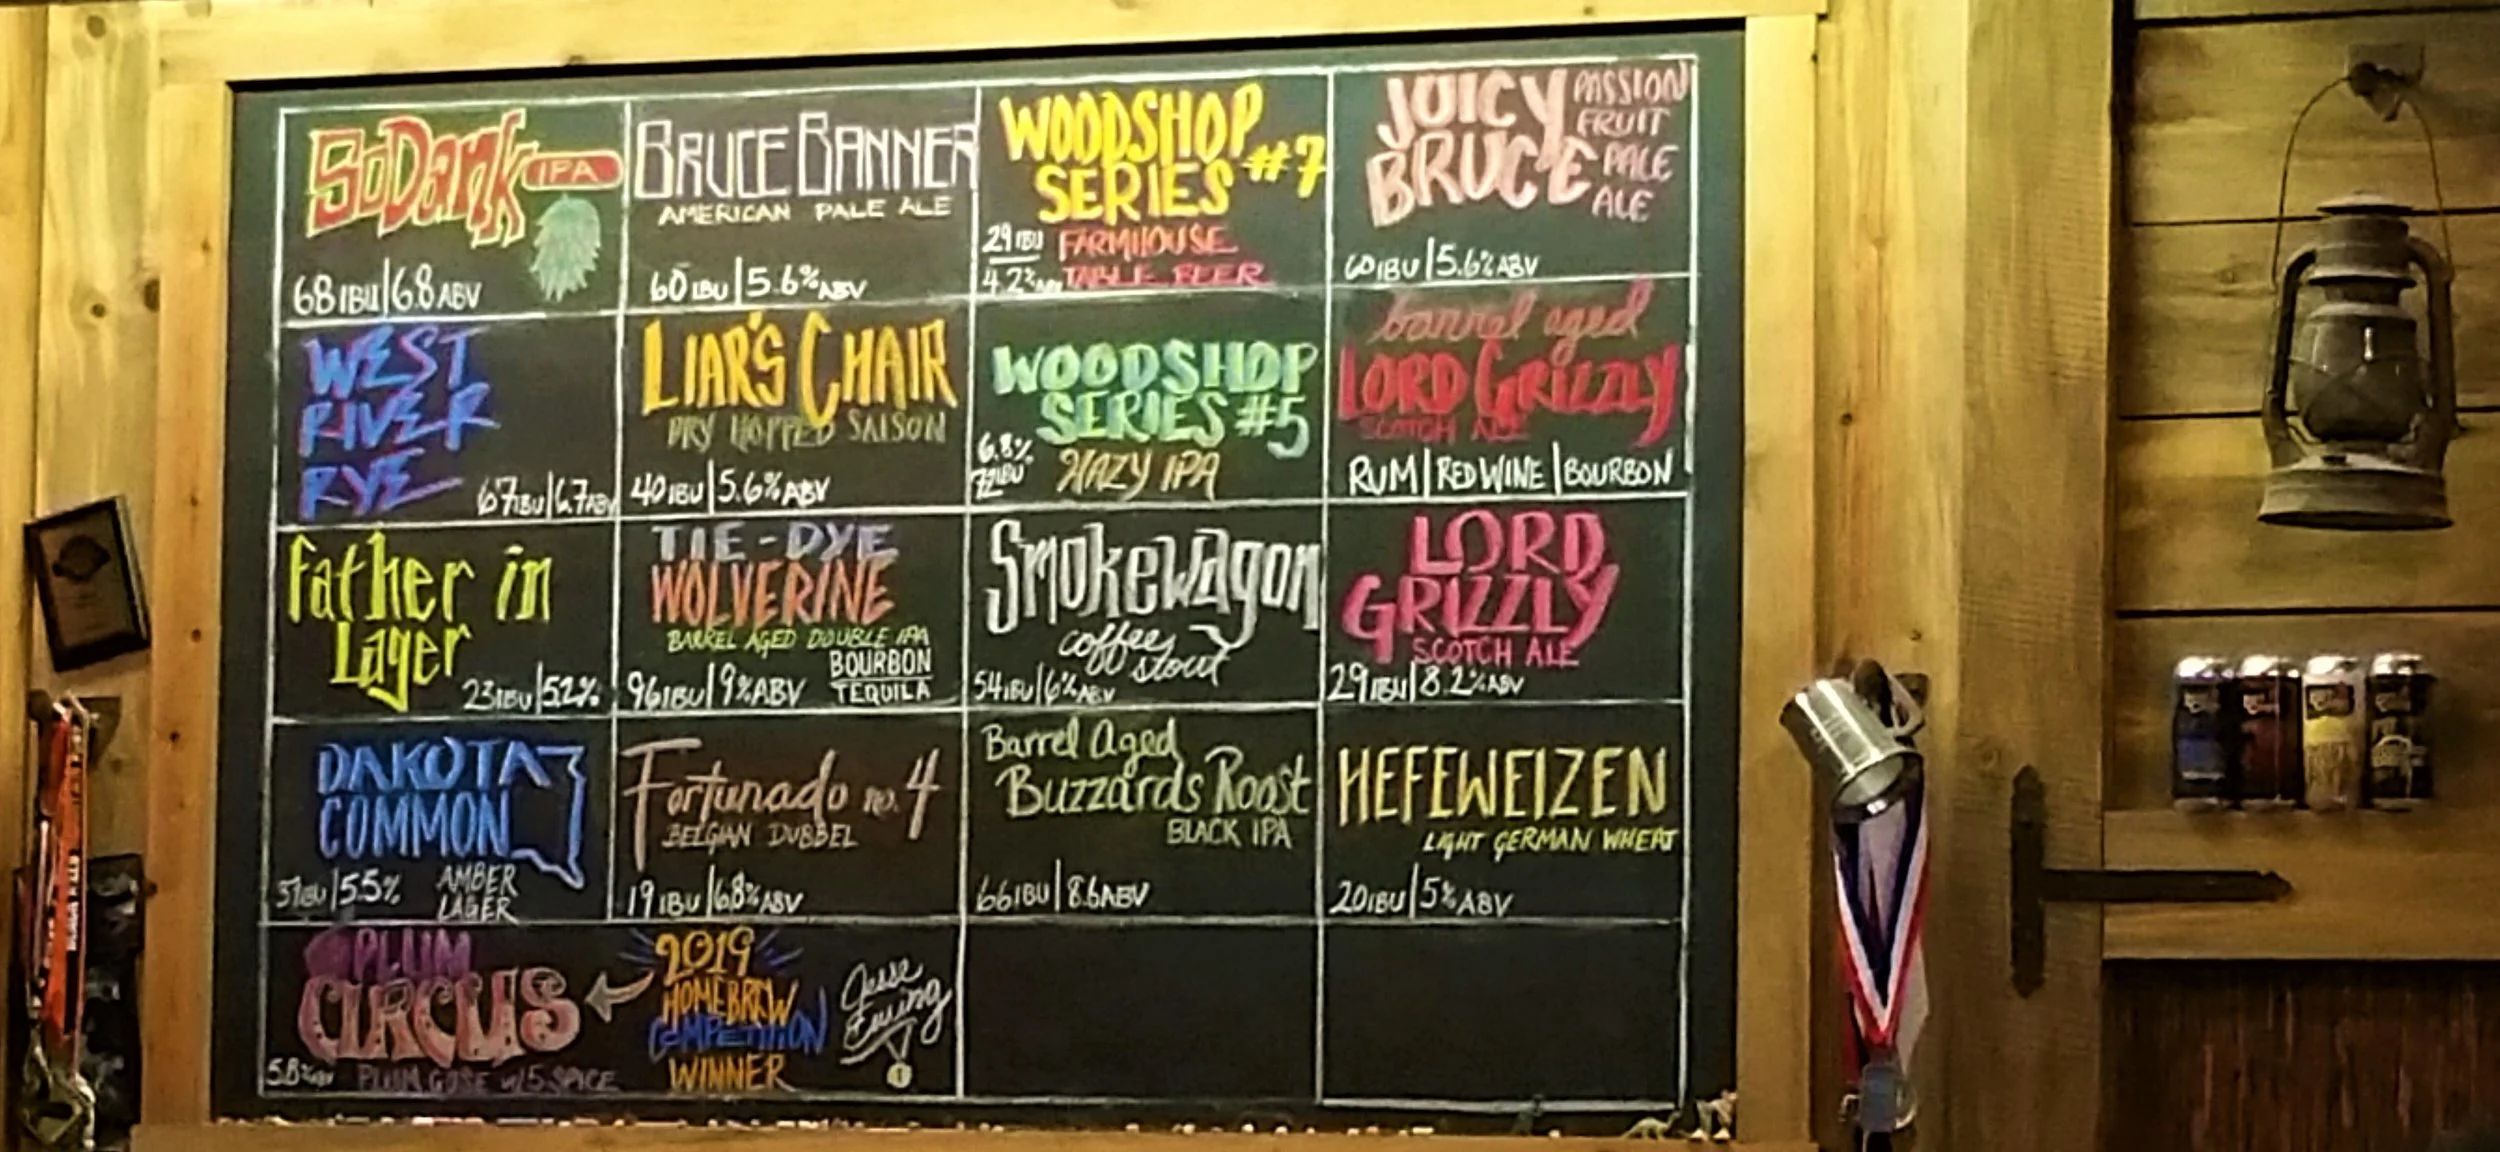 SoDank IPA
68 IBU | 6.8 ABV
BRUCE BANNER
AMERICAN PALE ALE
60 IBU | 5.6% ABV
WOODSHOP
SERIES #7
29 IBU
4.2% ABV
FARMHOUSE
TABLE BEER
JUICY
BRUCE
PASSION
FRUIT
PALE
ALE
60 IBU | 5.6% ABV
WEST
RIVER
RYE
67 IBU | 6.7 ABV
LIAR'S CHAIR
DRY HOPPED SAISON
40 IBU | 5.6% ABV
WOODSHOP
SERIES #5
6.8%
72 IBU
HAZY IPA
barrel aged
LORD GRIZZLY
SCOTCH ALE
RUM | RED WINE | BOURBON
Father in
Lager
23 IBU | 5.2%
TIE-DYE
WOLVERINE
BARREL AGED DOUBLE IPA
96 IBU | 9% ABV
BOURBON
TEQUILA
Smokewagon
coffee
stout
54 IBU | 6% ABV
LORD
GRIZZLY
SCOTCH ALE
29 IBU | 8.2% ABV
DAKOTA
COMMON
37 IBU | 5.5%
AMBER
LAGER
Fortunado no. 4
BELGIAN DUBBEL
19 IBU | 6.8% ABV
Barrel Aged
Buzzards Roost
BLACK IPA
66 IBU | 8.6 ABV
HEFEWEIZEN
LIGHT GERMAN WHEAT
20 IBU | 5% ABV
PLUM
CIRCUS
5.8% ABV
PLUM GOSE W/ 5 SPICE
2019
HOMEBREW
COMPETITION
WINNER
Jesse
Ewing
1